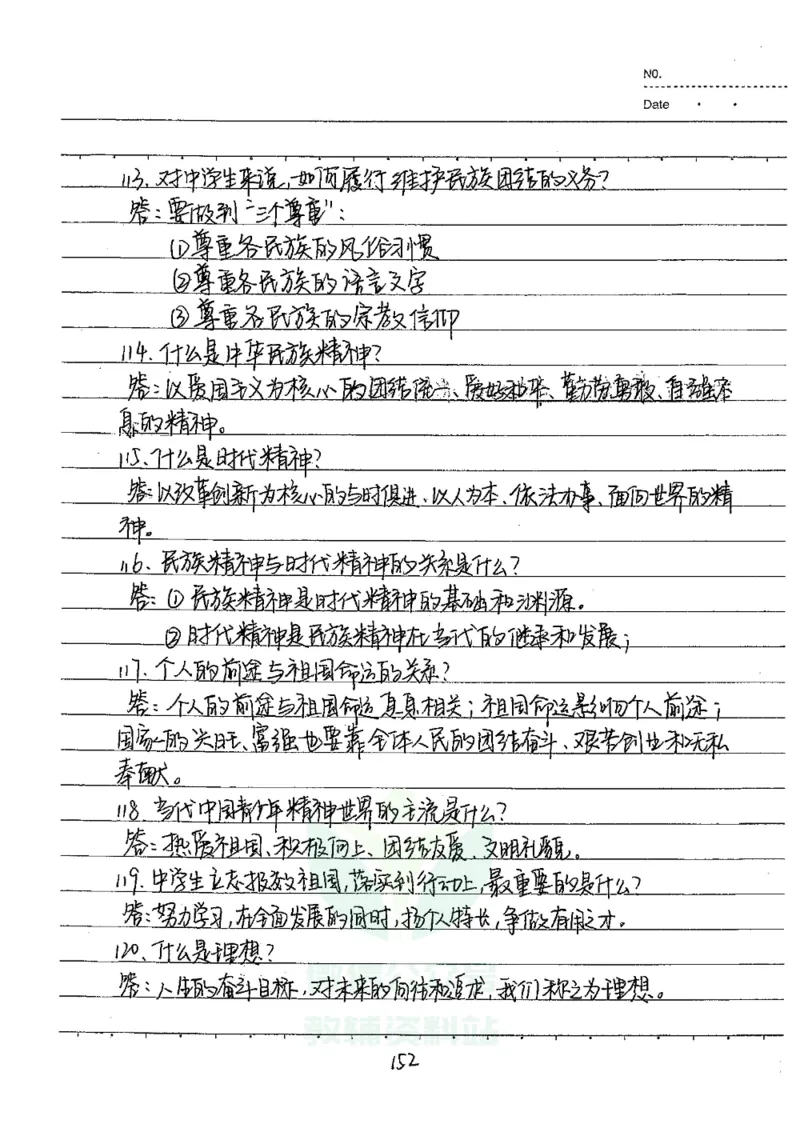 NO.
Date
113、对中学生来说,如何履行维护民族团结的义务?
答:要做到“三个尊重”:
①尊重各民族的风俗习惯
②尊重各民族的语言文字
③尊重各民族的宗教信仰
114、什么是中华民族精神?
答:以爱国主义为核心的团结统一、爱好和平、勤劳勇敢、自强不
息的精神。
115、什么是时代精神?
答:以改革创新为核心的与时俱进、以人为本、依法办事、面向世界的精
神。
116、民族精神与时代精神的关系是什么?
答:①民族精神是时代精神的基础和渊源。
②时代精神是民族精神在当代的继承和发展;
117、个人的前途与祖国命运的关系?
答:个人的前途与祖国命运息息相关;祖国命运影响个人前途;
国家的兴旺、富强也要靠全体人民的团结奋斗、艰苦创业和无私
奉献。
118、当代中国青少年精神世界的主流是什么?
答:热爱祖国、积极向上、团结友爱、文明礼貌。
119、中学生立志报效祖国,落实到行动上,最重要的是什么?
答:努力学习,在全面发展的同时,扬个人特长,争做有用之才。
120、什么是理想?
答:人生的奋斗目标,对未来的向往和追求,我们称之为理想。
教辅资料站
152